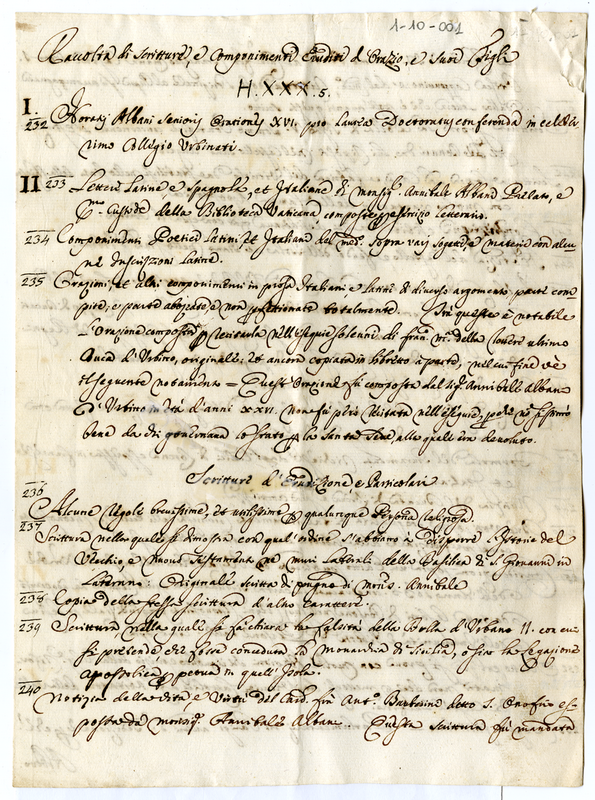 1-10-001
Raccolta di Scritture, e Componimenti Eruditi d'Orazio, e suoi Figli
H.XXX.5.
I.
232 Horatij Albani senioris Orationes XVI. pro Laurea Doctoratus conferenda in celeber-
rimo Collegio Urbinati.
II 233 Lettere Latine e Spagnole, et Italiane di Monsig.r Annibale Albano Prelato, e
P.mo Custode della Biblioteca Vaticana, composte per esercizio letterario.
234 Componimenti Poetici Latini, et Italiani del med.o sopra varij sogetti, e materie con alcu-
ne Inscrizioni Latine.
235 Orazioni, et altri componimenti in prosa Italiani, e Latini di diverso argomento, parte com-
pite, e parte abbozzate, e non perfettionate totalmente. Fra queste è notabile
l'Orazione composta per recitarla nell'esequie solenni di Fran.co M.a della Rovere ultimo
Duca d'Urbino, originale; et ancora copiata in libretto à parte, nel cui fine v'è
il seguente notamento = Questa Orazione fù composta dal Sig.r Annibale Albano
d'Urbino in età d'anni XXVI. non fù però recitata nell'esequie, perche non si
bene da chi governava lo stato per la Santa Sede, alla quale era devoluto.
Scritture d'Erudizione, e Particolari
236
Alcune regole brevissime, et utilissime per qualunque Persona religiosa.
237
Scrittura nella quale si dimostra con qual'ordine s'abbiano à disporre l'Istorie del
Vecchio, e nuovo Testamento ne' muri laterali della Basilica di S. Giovanni in
Laterano: Originale scritta di pugno di Mons.r Annibale
238 Copia della stessa scrittura d'altro carattere.
239 Scrittura nella quale si fà chiara la falsità della Bolla d'Urbano II. con cui
si pretende, che fosse conceduta la Monarchia di Sicilia, o sia la legazione
Apostolica perpetua in quell'Isola.
240
Notizie della vita, e Virtù del Card. fra Ant.o Barberino detto S. Onofrio es-
poste da Monsig.r Annibale Albano. Questa scrittura fù mandata